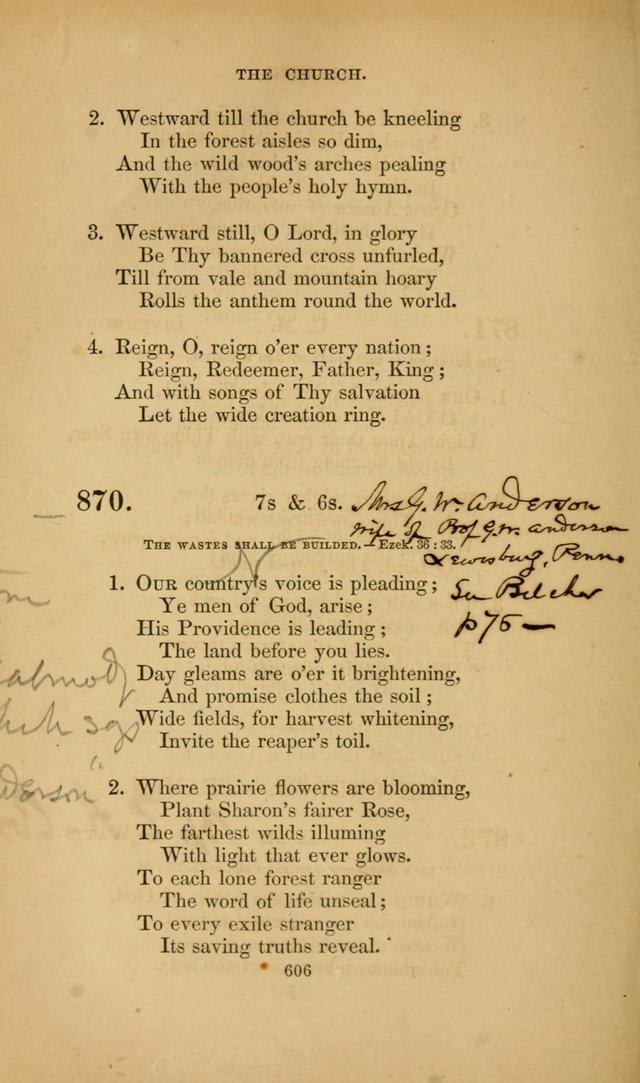 THE CHURCH.
2. Westward till the church be kneeling
In the forest aisles so dim,
And the wild wood's arches pealing
With the people's holy hymn.
3. Westward still, O Lord, in glory
Be Thy bannered cross unfurled,
Till from vale and mountain hoary
Rolls the anthem round the world.
4. Reign, O, reign o'er every nation;
Reign, Redeemer, Father, King;
And with songs of Thy salvation
Let the wide creation ring.
870. 7s & 6s. Mrs G. W. Anderson
wife of Prof G. W. Anderson
THE WASTES SHALL BE BUILDED.—Ezek. 36:33.
Lewisburg, Penn.
1. OUR country's voice is pleading;
See Belcher
Ye men of God, arise;
His Providence is leading;
p 76 —
The land before you lies.
Day gleams are o'er it brightening,
And promise clothes the soil;
Wide fields, for harvest whitening,
Invite the reaper's toil.
derson
2. Where prairie flowers are blooming,
Plant Sharon's fairer Rose,
The farthest wilds illuming
With light that ever glows.
To each lone forest ranger
The word of life unseal;
To every exile stranger
Its saving truths reveal.
606